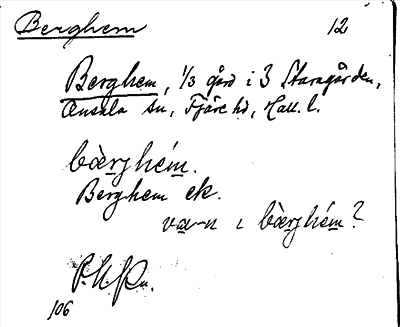 Berghem 12
Berghem, 1/3 gård i 3 Staragården,
Onsala sn, Fjäre hd, Hall. l.
bæ̀rghém.
Berghem ek.
va-n ı bæ̀rghém?
106